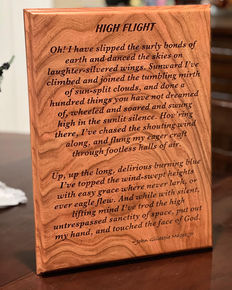 HIGH FLIGHT
Oh! I have slipped the surly bonds of
earth and danced the skies on
laughter-silvered wings. Sunward I've
climbed and joined the tumbling mirth
of sun-split clouds, and done a
hundred things you have not dreamed
of, wheeled and soared and swung
high in the sunlit silence. Hov'ring
there, I've chased the shouting wind
along, and flung my eager craft
through footless halls of air.
Up, up the long, delirious burning blue
I've topped the wind-swept heights
with easy grace where never lark, or
ever eagle flew. And while with silent
lifting mind I've trod the high
untrespassed sanctity of space, put out
my hand, and touched the face of God.
- John Gillespie Magee, Jr.